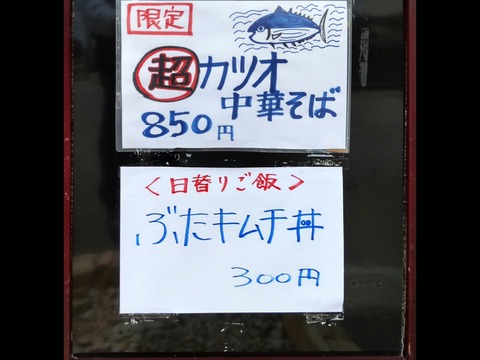 限定
超カツオ
中華そば
850円
<日替りご飯>
ぶたキムチ丼
300円